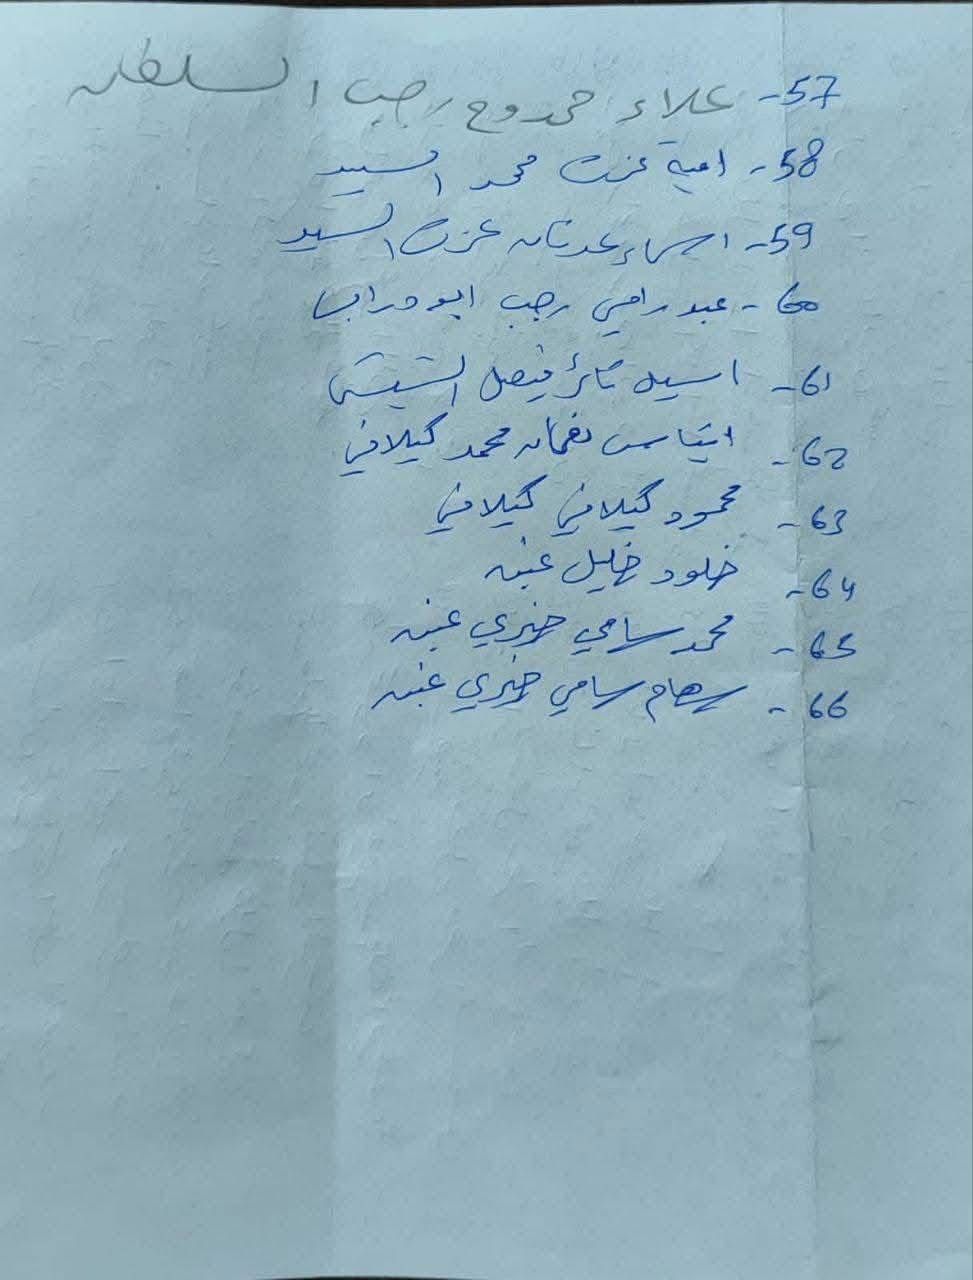 57- علاء حمدوح رجب السلطان
58- امية عزت محمد السيد
59- اسراء عدنان عزت السيد
60- عبد رامي رجب ابو دراب
61- اسيل ثائر فيصل الشيشي
62- ايناس نعمان محمد گيلاني
63- محمود گيلاني گيلاني
64- خلود خليل عنبه
65- محمد سامي خيري عنبه
66- سهام سامي خيري عنبه